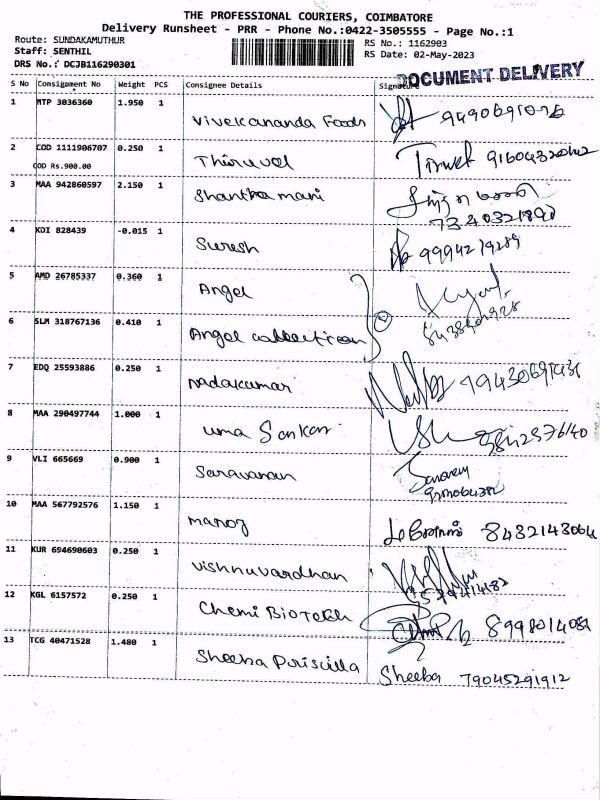 THE PROFESSIONAL COURIERS, COIMBATORE
Delivery Runsheet - PRR - Phone No.:0422-3505555 - Page No.:1
Route: SUNDAKAMUTHUR
RS No.: 1162903
Staff: SENTHIL
RS Date: 02-May-2023
DRS No.: DCJB116290301
DOCUMENT DELIVERY
S No Consignment No Weight PCS Consignee Details Signature
1 MTP 3036360 1.950 1 Vivekananda Foods
2 COD 1111906707 0.250 1 Thiruvel
COD Rs.900.00
3 MAA 942860597 2.150 1 Shantha mani
4 KDI 828439 -0.015 1 Suresh 9994219289
5 AMD 26785337 0.360 1 Angel
6 SLM 318767136 0.410 1 Angel collection
7 EDQ 25593886 0.250 1 nadakumar
8 MAA 290497744 1.000 1 uma Sankari
9 VLI 665669 0.900 1 Saravanan
10 MAA 567792576 1.150 1 manoj
11 KUR 694690603 0.250 1 Vishnuvardhan
12 KGL 6157572 0.250 1 Chemi Biotekh
13 TCG 40471528 1.480 1 Sheeba Priscilla Sheeba 79045291912